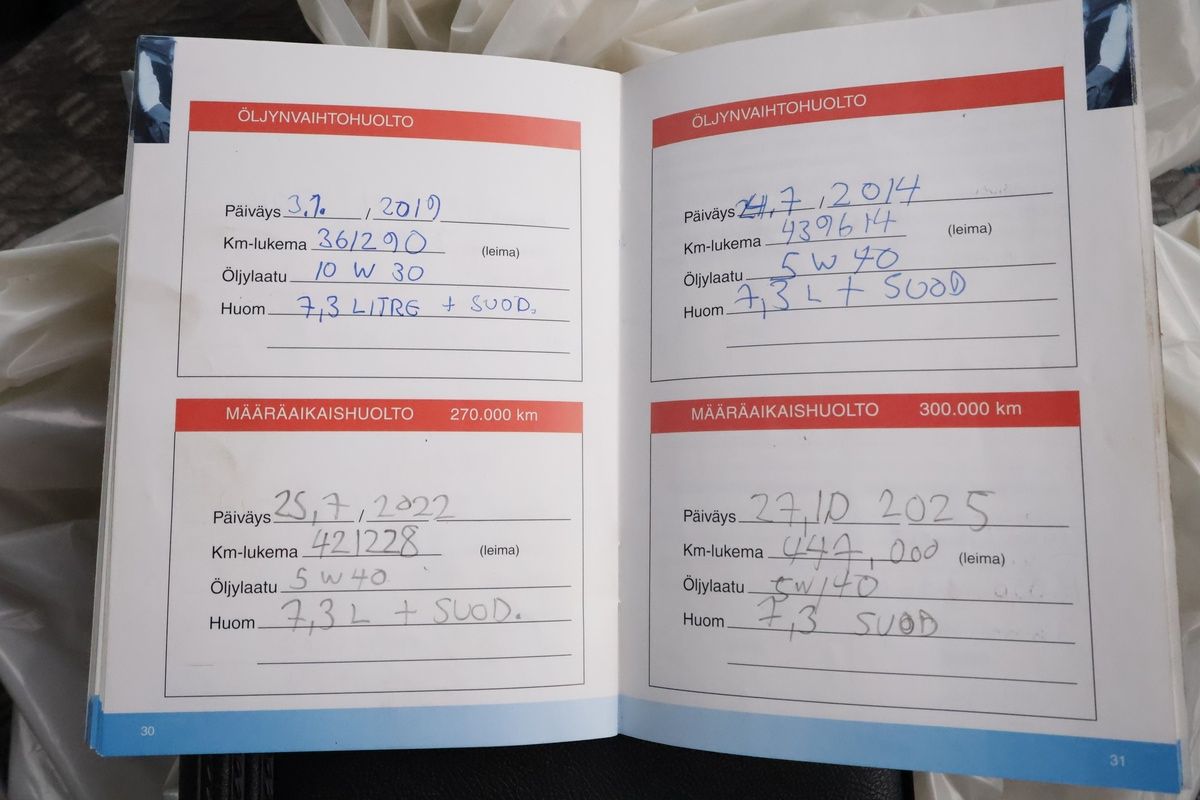 ÖLJYNVAIHTOHUOLTO
Päiväys 3.7. / 2019
Km-lukema 361290 (leima)
Öljylaatu 10 W 30
Huom 7,3 LITRE + SUOD.
MÄÄRÄAIKAISHUOLTO 270.000 km
Päiväys 25,7 / 2022
Km-lukema 421228 (leima)
Öljylaatu 5 W 40
Huom 7,3 L + SUOD.
30
ÖLJYNVAIHTOHUOLTO
Päiväys 21,7 / 2014
Km-lukema 439614 (leima)
Öljylaatu 5 W 40
Huom 7,3 L + SUOD
MÄÄRÄAIKAISHUOLTO 300.000 km
Päiväys 27,10 2025
Km-lukema 447,000 (leima)
Öljylaatu 5W/40
Huom 7,3 SUOD
31